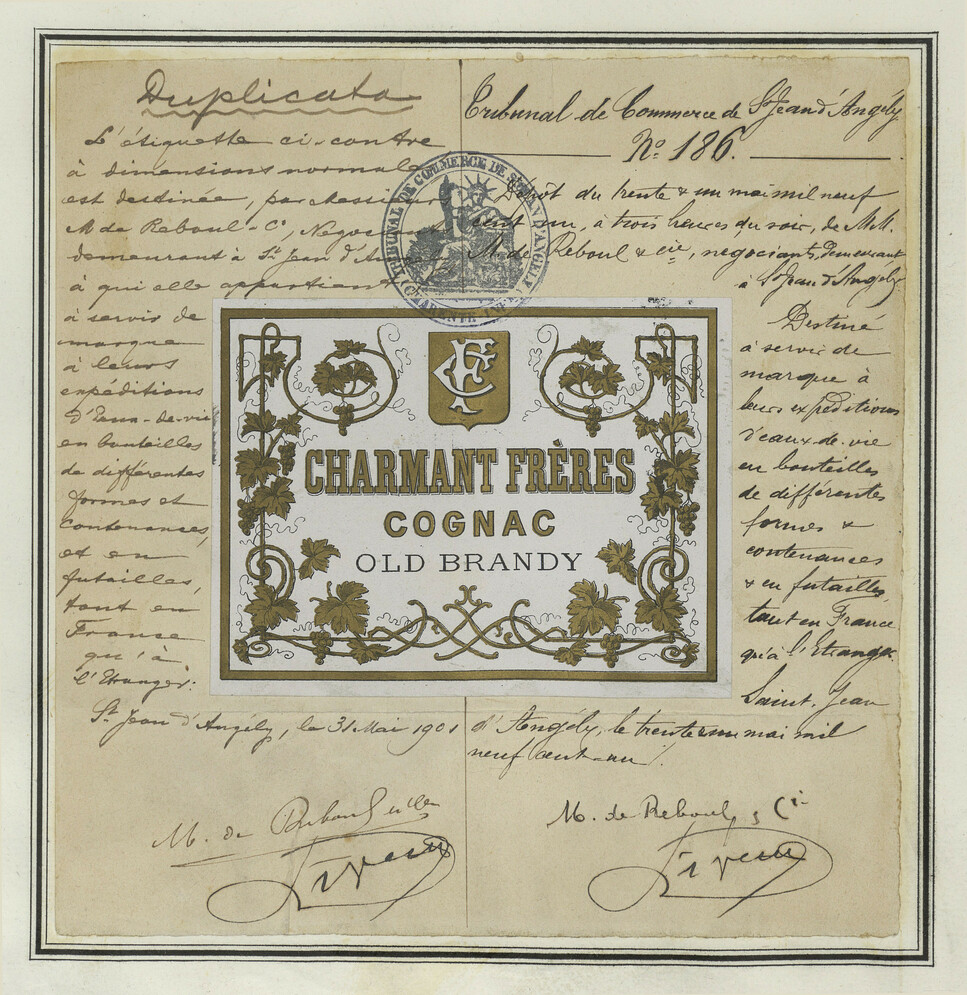 Duplicata
L'étiquette ci-contre
à dimensions normales
est destinée, par Messieurs
M de Reboul & Cⁱᵉ, Negociants
demeurant à St Jean d'Angély
à qui elle appartient
à servir de
marque
à leurs
expéditions
d'Eaux-de-vie
en bouteilles
de différentes
formes et
contenances,
et en
futailles
tant en
France
qu'à
l'Etranger.
St Jean d'Angély, le 31 Mai 1901
M. de Reboul
Tribunal de Commerce de St Jean d'Angély
No 186.
Dépôt du trente & un mai mil neuf
cent un, à trois heures du soir, de M.M.
M. de Reboul & cie, négociants, demeurant
à St Jean d'Angély
Destiné
à servir de
marque à
leurs expéditions
d'eaux-de-vie
en bouteilles
de différentes
formes &
contenances
& en futailles,
tant en France
qu'à l'Etranger.
Saint-Jean
d'Angély, le trente & un mai mil
neuf cent-un.
M. de Reboul & Cie
TRIBUNAL DE COMMERCE DE ST JEAN D'ANGELY
CHARENTE INFRE
CF
CHARMANT FRÈRES
COGNAC
OLD BRANDY